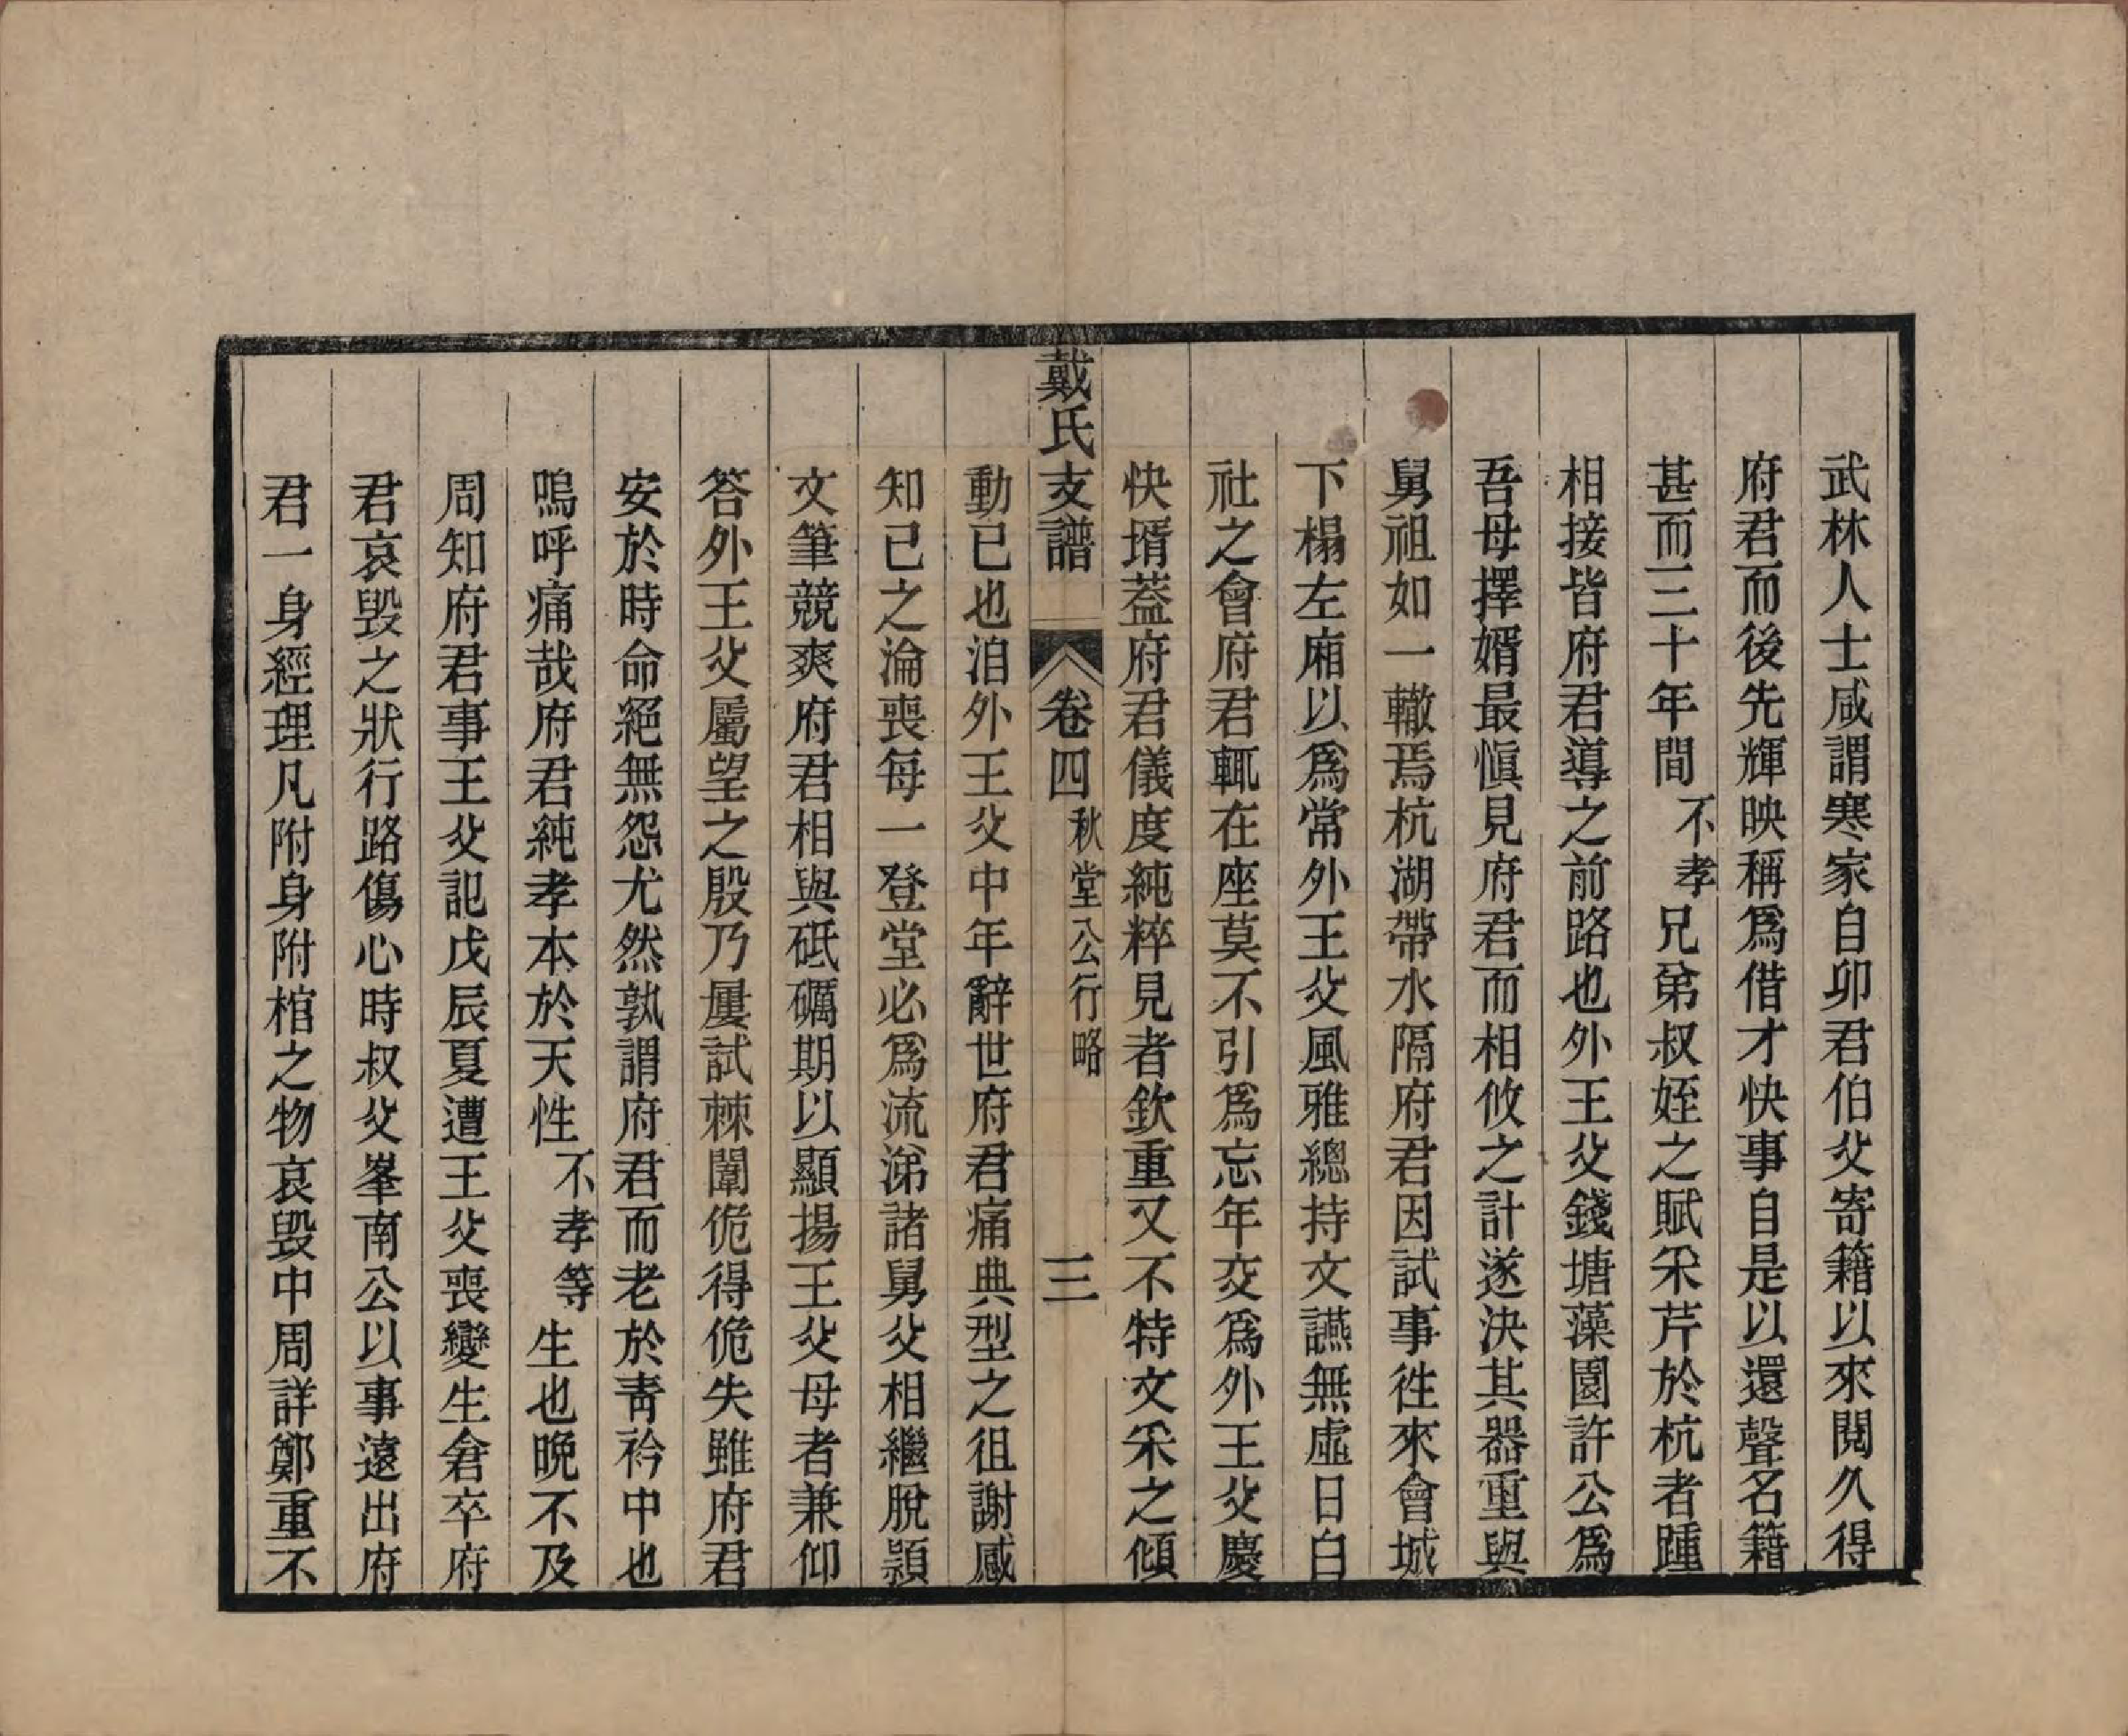 武林人士咸謂寒家自卯君伯父寄籍以來閱久得
府君而後先輝映稱爲借才快事自是以還聲名籍
甚而三十年間不孝兄弟叔姪之賦采芹於杭者踵
相接皆府君導之前路也外王父錢塘藻園許公爲
吾母擇婿最愼見府君而相攸之計遂決其器重與
舅祖如一轍焉杭湖帶水隔府君因試事徃來會城
下榻左廂以爲常外王父風雅總持文讌無虛日白
社之會府君輒在座莫不引爲忘年交爲外王父慶
快壻葢府君儀度純粹見者欽重又不特文采之傾
戴氏支譜
卷四 秋堂公行略
三
動已也洎外王父中年辭世府君痛典型之徂謝感
知己之淪喪每一登堂必爲流涕諸舅父相繼脫穎
文筆競爽府君相與砥礪期以顯揚王父母者兼仰
答外王父屬望之殷乃屢試棘闈佹得佹失雖府君
安於時命絕無怨尤然孰謂府君而老於靑衿中也
嗚呼痛哉府君純孝本於天性不孝等生也晚不及
周知府君事王父記戊辰夏遭王父喪變生倉卒府
君哀毀之狀行路傷心時叔父峯南公以事遠出府
君一身經理凡附身附棺之物哀毀中周詳鄭重不